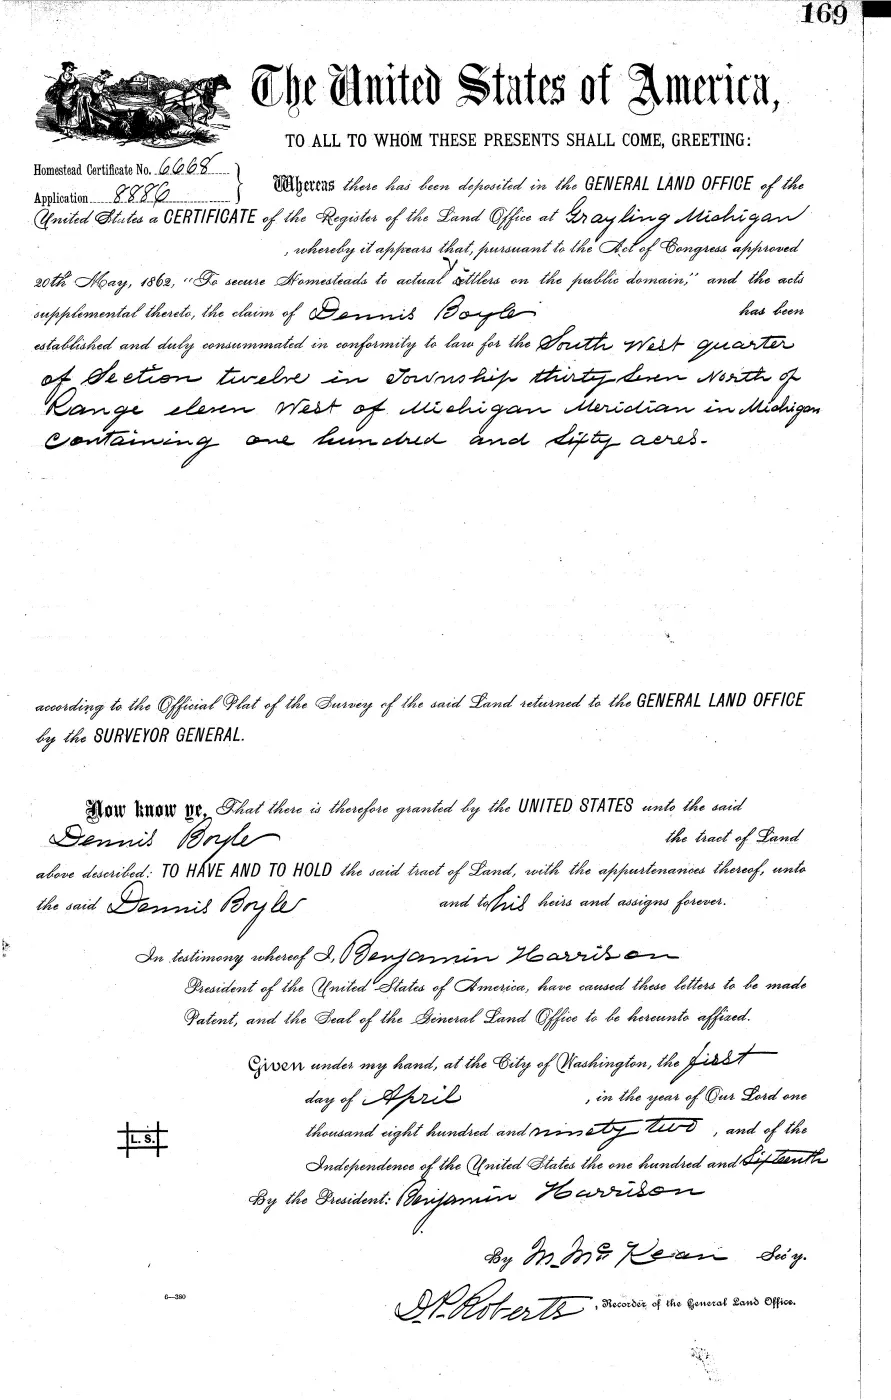 169
The United States of America,
TO ALL TO WHOM THESE PRESENTS SHALL COME, GREETING:
Homestead Certificate No. 6668
Application 8886
Whereas there has been deposited in the GENERAL LAND OFFICE of the
United States a CERTIFICATE of the Register of the Land Office at Grayling Michigan
, whereby it appears that, pursuant to the Act of Congress approved
20th May, 1862, "To secure Homesteads to actual settlers on the public domain," and the acts
supplemental thereto, the claim of Dennis Boyle has been
established and duly consummated in conformity to law for the South West quarter
of Section twelve in Township thirty seven North of
Range eleven West of Michigan Meridian in Michigan
containing one hundred and sixty acres.
according to the Official Plat of the Survey of the said Land returned to the GENERAL LAND OFFICE
by the SURVEYOR GENERAL.
Now know ye, That there is therefore granted by the UNITED STATES unto the said
Dennis Boyle the tract of Land
above described: TO HAVE AND TO HOLD the said tract of Land, with the appurtenances thereof, unto
the said Dennis Boyle and to his heirs and assigns forever.
In testimony whereof I, Benjamin Harrison
President of the United States of America, have caused these letters to be made
Patent, and the Seal of the General Land Office to be hereunto affixed.
Given under my hand, at the City of Washington, the first
day of April , in the year of Our Lord one
thousand eight hundred and ninety two , and of the
L. S.
Independence of the United States the one hundred and Sixteenth
By the President: Benjamin Harrison
By M. McKean Sec'y.
6—380
D.P. Roberts , Recorder of the General Land Office.